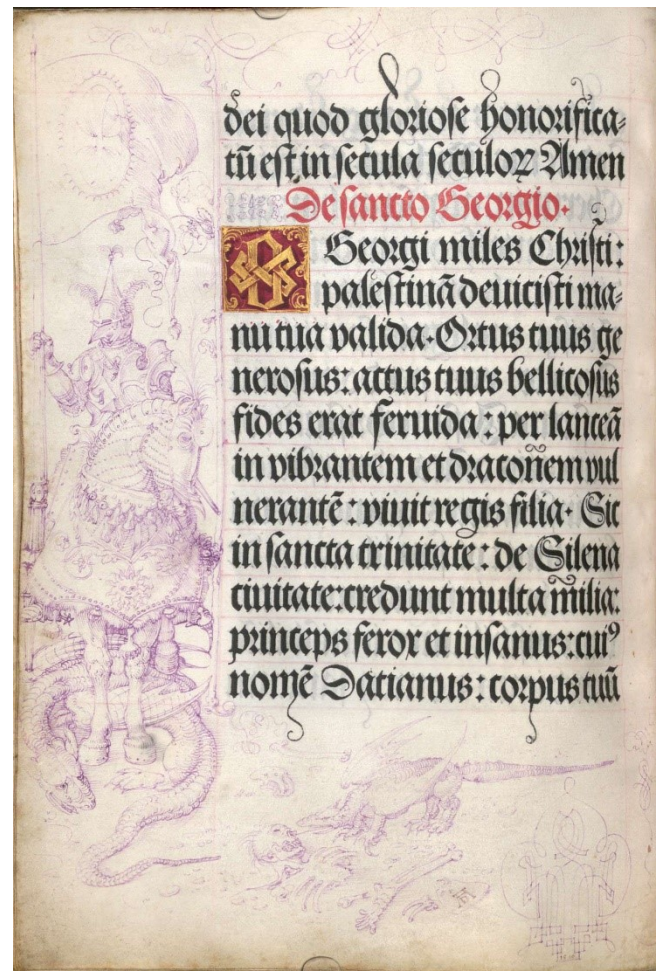 dei quod gloriose honorifica⸗
tū est in secula seculoꝝ Amen
De sancto Georgio.
Georgi miles Christi:
palestinā deuicisti ma⸗
nu tua valida. Ortus tuus ge
nerosus: actus tuus bellicosus
fides erat feruida: per lanceā
in vibrantem et draconem vul
nerantē: viuit regis filia. Sic
in sancta trinitate: de Silena
ciuitate: credunt multa milia:
princeps ferox et insanus: cuiꝰ
nomē Datianus: corpus tuū